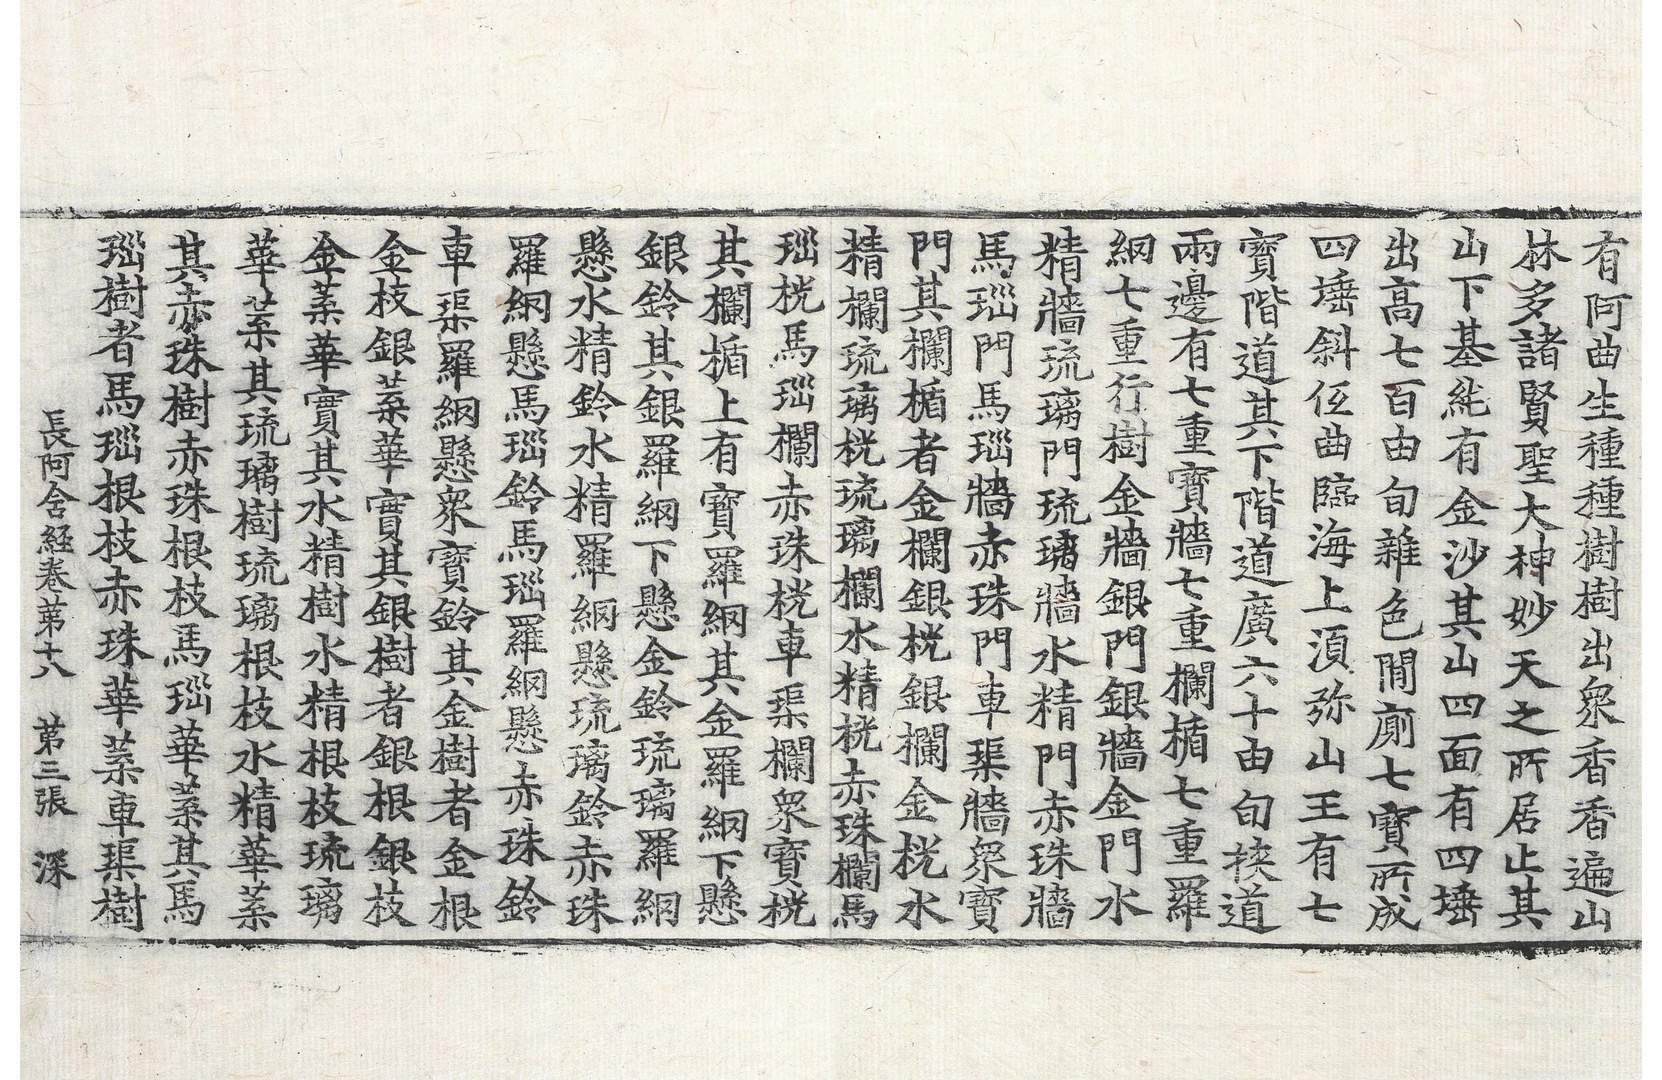 有阿曲生種種樹樹出衆香香遍山
林多諸賢聖大神妙天之所居止其
山下基純有金沙其山四面有四埵
出高七百由旬雜色閒廁七寶所成
四埵斜伍曲臨海上湏弥山王有七
寶階道其下階道廣六十由旬挾道
兩邊有七重寶牆七重欄楯七重羅
網七重行樹金牆銀門銀牆金門水
精牆琉璃門琉璃牆水精門赤珠牆
馬瑙門馬瑙牆赤珠門車𤦲牆衆寶
門其欄楯者金欄銀桄銀欄金桄水
精欄琉璃桄琉璃欄水精桄赤珠欄馬
瑙桄馬瑙欄赤珠桄車𤦲欄衆寶桄
其欄楯上有寶羅網其金羅網下懸
銀鈴其銀羅網下懸金鈴琉璃羅網
懸水精鈴水精羅網懸琉璃鈴赤珠
羅網懸馬瑙鈴馬瑙羅網懸赤珠鈴
車𤦲羅網懸衆寶鈴其金樹者金根
金枝銀葉華實其銀樹者銀根銀枝
金葉華實其水精樹水精根枝琉璃
華葉其琉璃樹琉璃根枝水精華葉
其赤珠樹赤珠根枝馬瑙華葉其馬
瑙樹者馬瑙根枝赤珠華葉車𤦲樹
長阿含經卷第十八 第三張 深